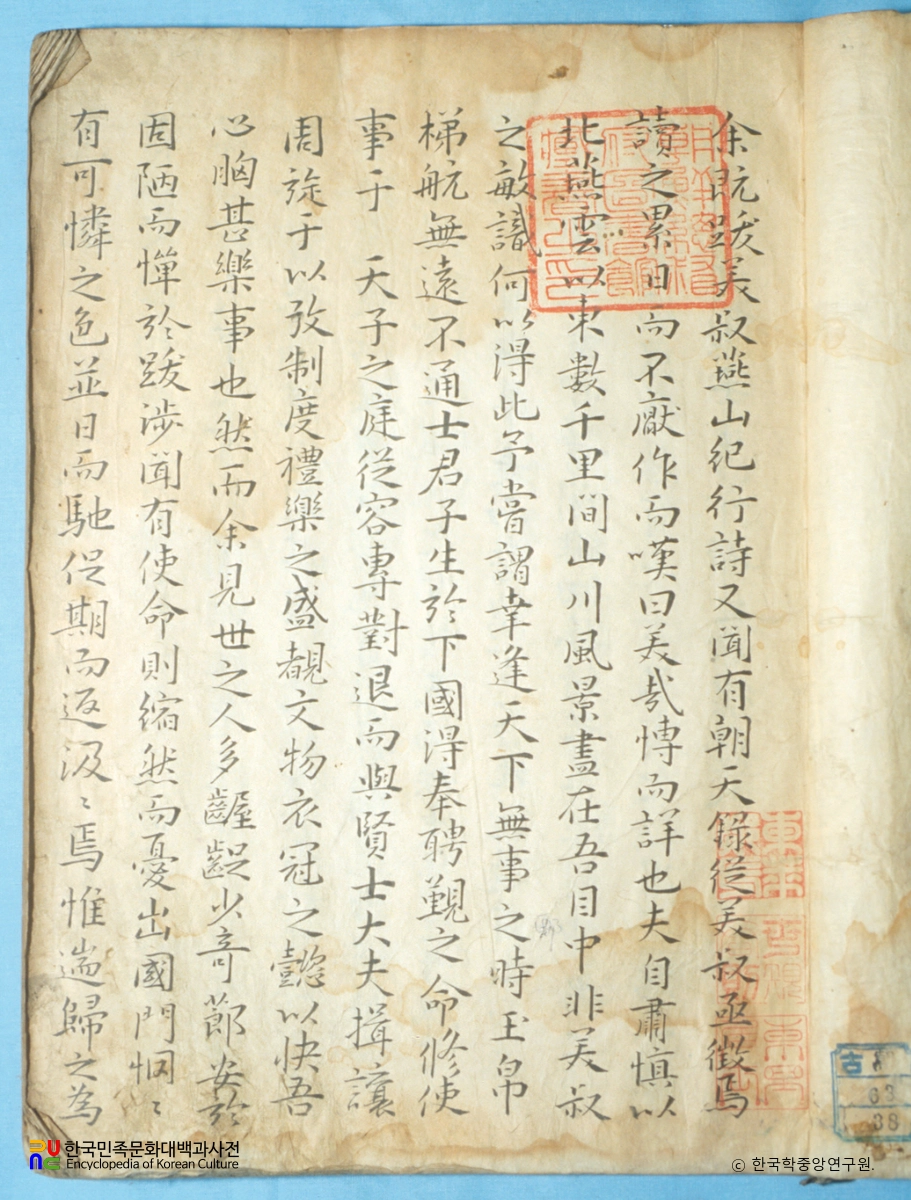 余既跋美叔燕山紀行詩又聞有朝天錄從美叔亟徵焉
讀之累日而不厭作而嘆曰美哉博而詳也夫自肅愼以
北燕雲以東數千里間山川風景盡在吾目中非美叔
之敏識何以得此予嘗謂幸逢天下無事之時玉帛
梯航無遠不通士君子生於下國得奉聘覲之命修使
事于 天子之庭從容專對退而與賢士大夫揖讓
周旋于以攷制度禮樂之盛覩文物衣冠之懿以快吾
心胸甚樂事也然而余見世之人多齷齪少奇節安於
固陋而憚於跋涉聞有使命則縮然而憂出國門悃〻
有可憐之色並日而馳促期而返汲〻焉惟遄歸之為
古
63
38
한국민족문화대백과사전
Encyclopedia of Korean Culture
© 한국학중앙연구원.